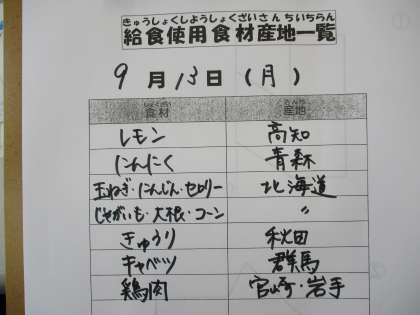 きゅうしょくしようしょくざいさんちいちらん
給食使用食材産地一覧
9月13日(月)
食材 産地
レモン 高知
にんにく 青森
玉ねぎ・にんじん・セロリー 北海道
じゃがいも・大根・コーン 〃
きゅうり 秋田
キャベツ 群馬
鶏肉 宮崎・岩手